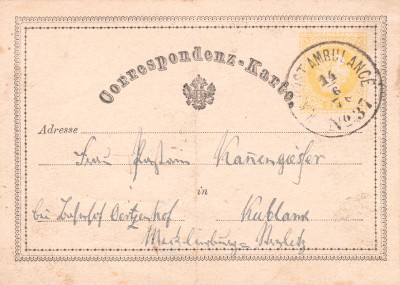 Correspondenz-Karte.
POST AMBULANCE
14
6
74
No. 37
Adresse
Frau Pastorin Kannengießer
in
bei Bahnhof Oertzenhof Kublank
Mecklenburg-Strelitz